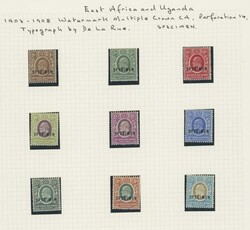 East Africa and Uganda
1904-1908 Watermark Multiple Crown CA, Perforation 14.
Typograph by De La Rue. SPECIMEN.
SPECIMEN SPECIMEN SPECIMEN
SPECIMEN SPECIMEN SPECIMEN
SPECIMEN SPECIMEN SPECIMEN